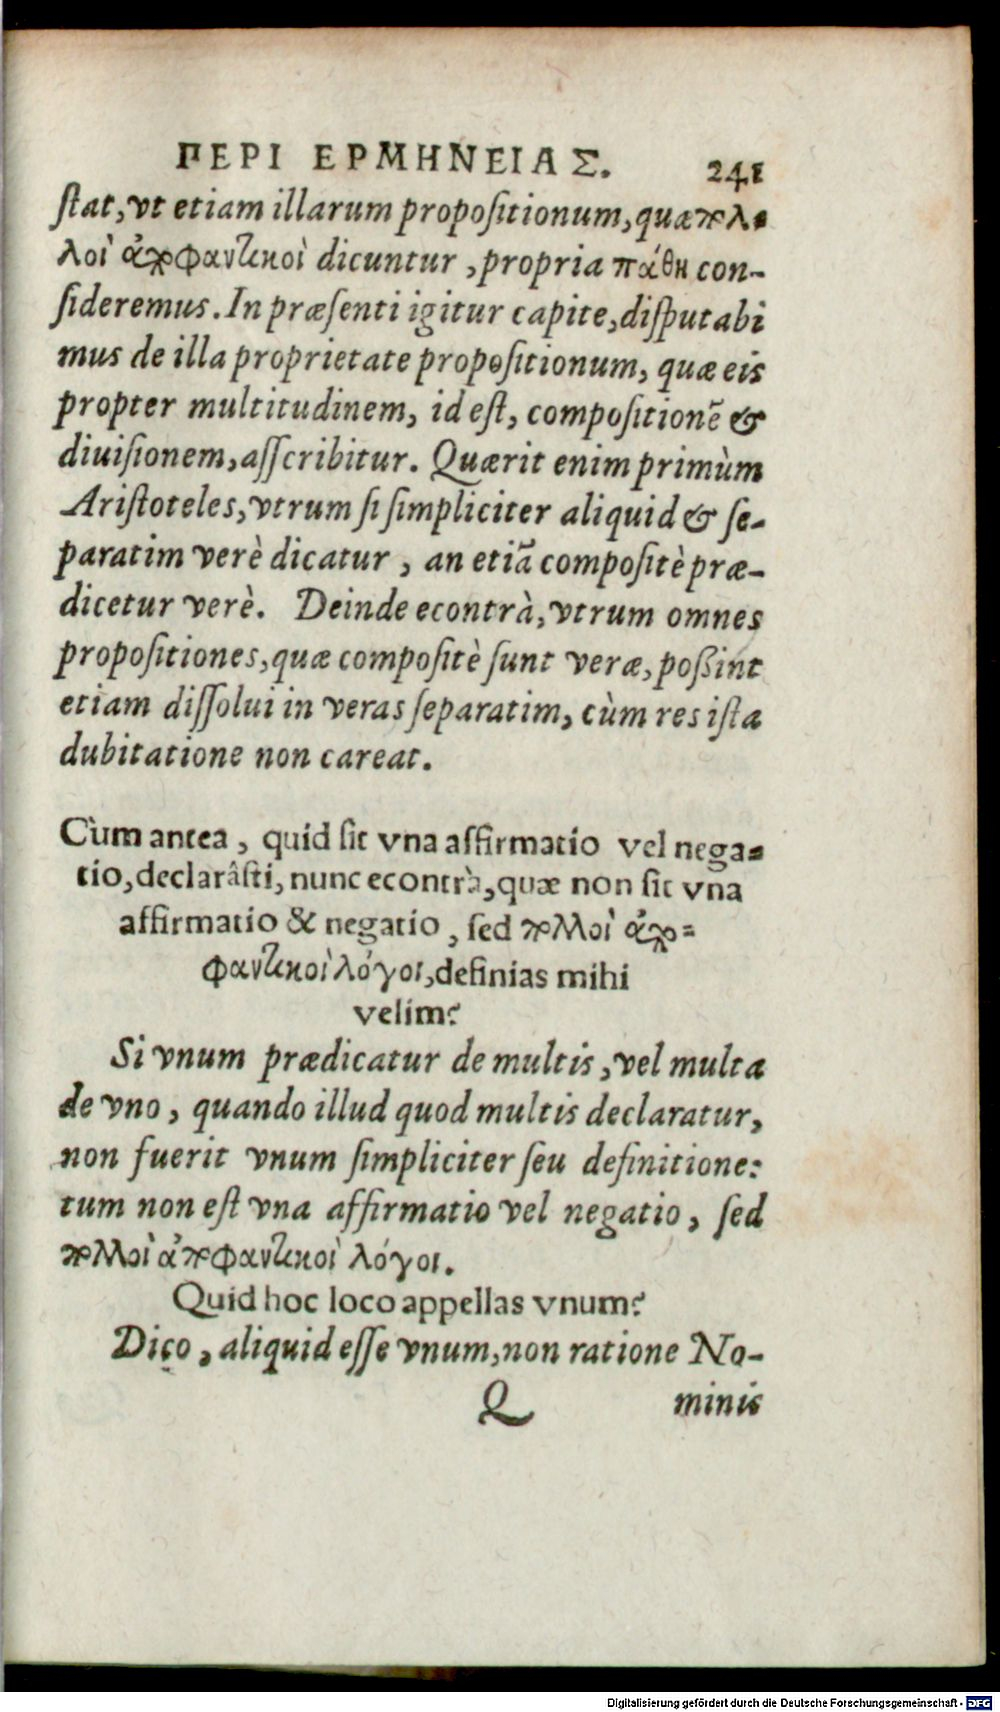 ΠΕΡΙ ΕΡΜΗΝΕΙΑΣ. 241
ſtat, vt etiam illarum propoſitionum, quæ πολ-
λοὶ ἀποφαντικοὶ dicuntur, propria πάθη con-
ſideremus. In præſenti igitur capite, diſputabi
mus de illa proprietate propoſitionum, quæ eis
propter multitudinem, id eſt, compoſitionē &
diuiſionem, aſſcribitur. Quærit enim primùm
Ariſtoteles, vtrum ſi ſimpliciter aliquid & ſe-
paratim verè dicatur, an etiā compoſitè præ-
dicetur verè. Deinde econtrà, vtrum omnes
propoſitiones, quæ compoſitè ſunt veræ, poßint
etiam diſſolui in veras ſeparatim, cùm res iſta
dubitatione non careat.
Cùm antea, quid ſit vna affirmatio vel nega-
tio, declarâſti, nunc econtrà, quæ non ſit vna
affirmatio & negatio, ſed πολλοὶ ἀπο-
φαντικοὶ λόγοι, definias mihi
velim?
Si vnum prædicatur de multis, vel multa
de vno, quando illud quod multis declaratur,
non fuerit vnum ſimpliciter ſeu definitione:
tum non eſt vna affirmatio vel negatio, ſed
πολλοὶ ἀποφαντικοὶ λόγοι.
Quid hoc loco appellas vnum?
Dico, aliquid eſſe vnum, non ratione No-
Q minis
Digitalisierung gefördert durch die Deutsche Forschungsgemeinschaft - DFG